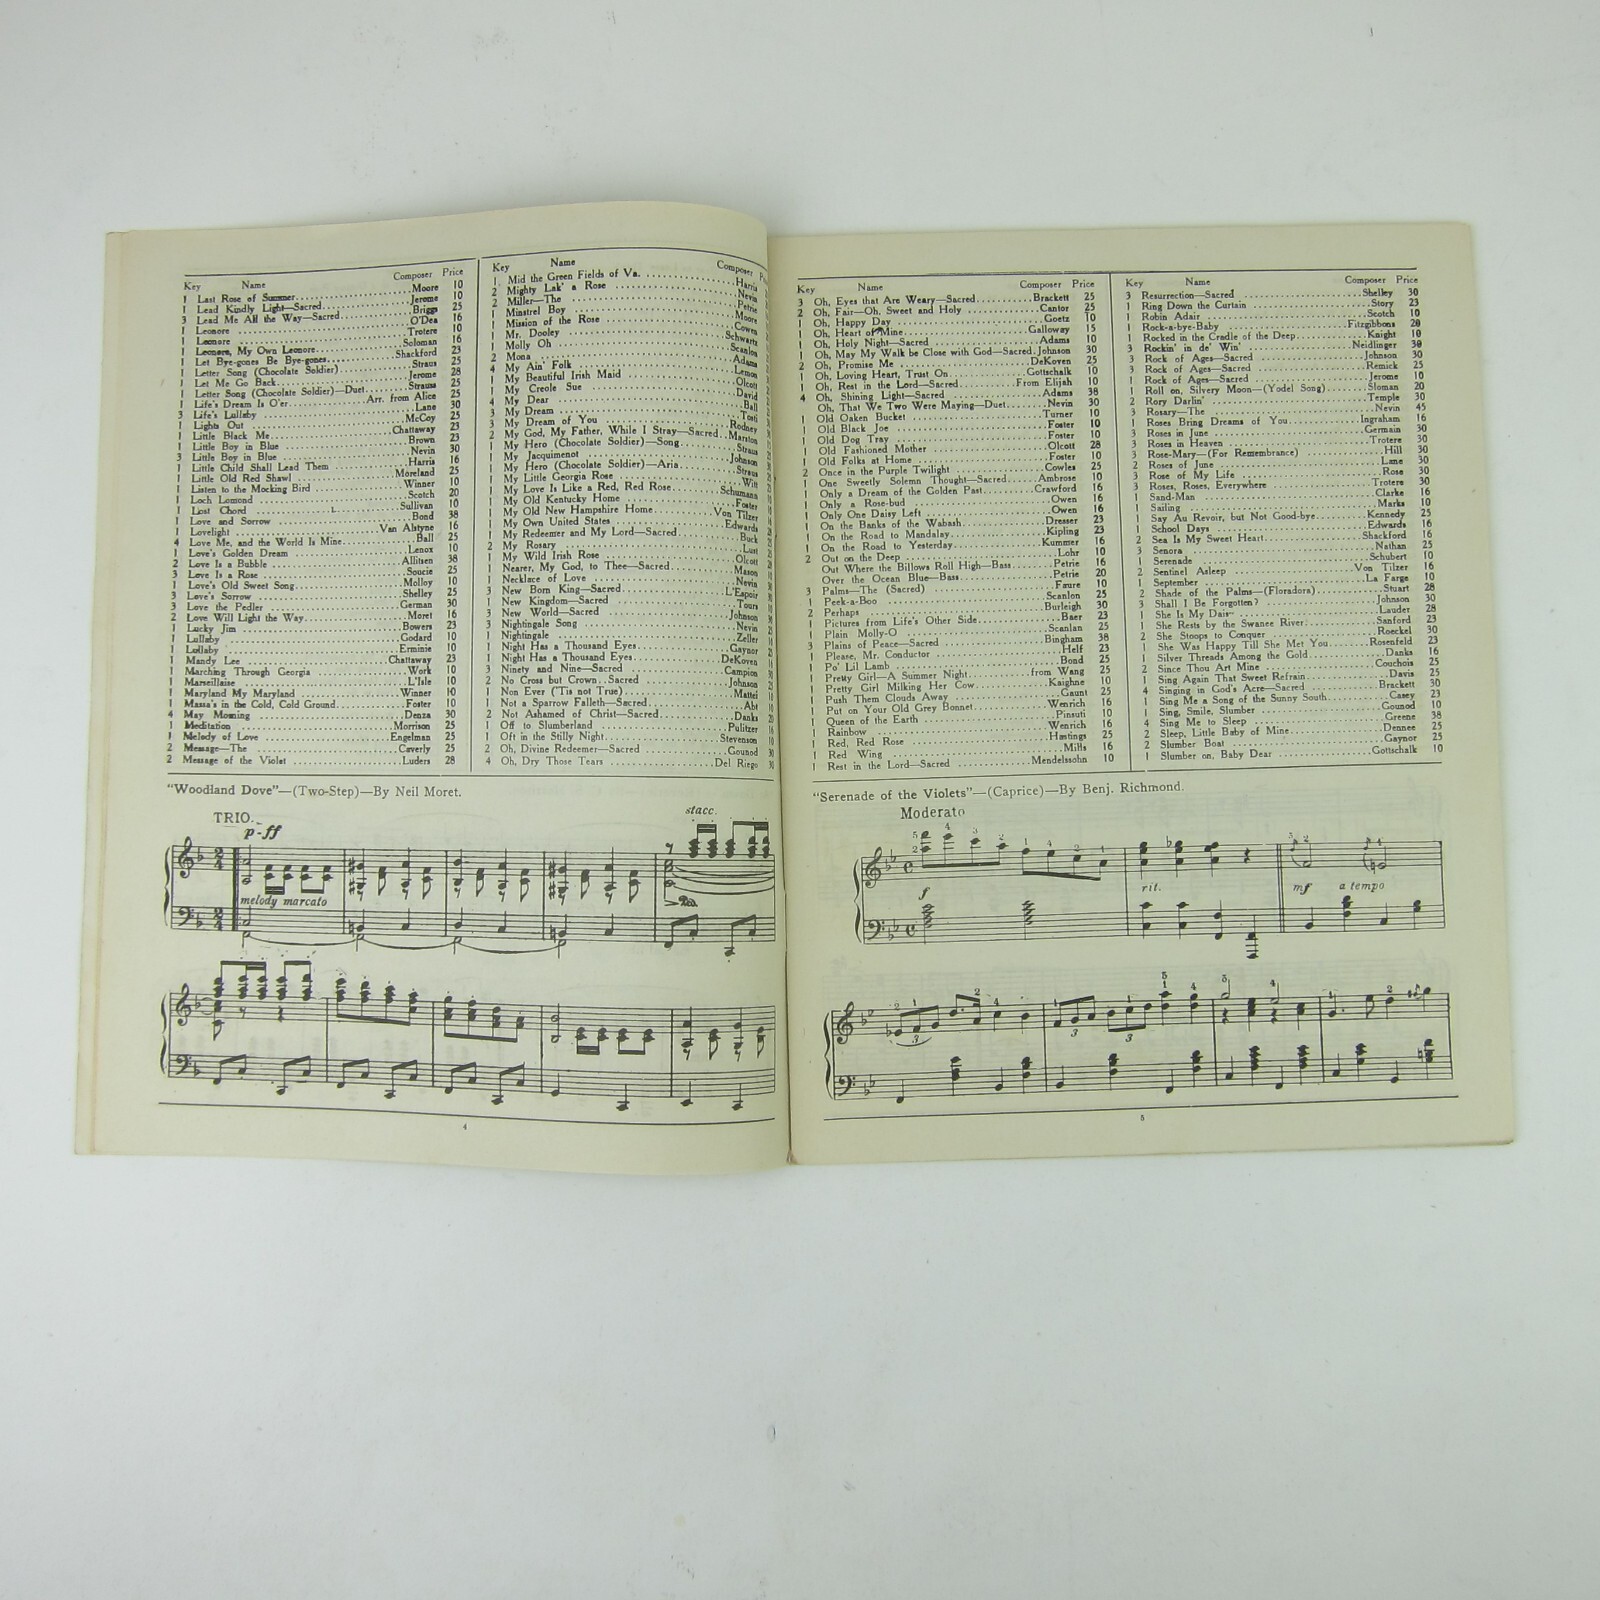 Key Name Composer Price
1 Last Rose of Summer Moore 10
1 Lead Kindly Light—Sacred Jerome 10
3 Lead Me All the Way—Sacred Briggs 25
1 Leonore O'Dea 16
1 Leonore Trotere 10
1 Leonore, My Own Leonore Soloman 16
1 Let Bye-gones Be Bye-gones Shackford 23
1 Letter Song (Chocolate Soldier) Straus 25
1 Let Me Go Back Jerome 28
1 Letter Song (Chocolate Soldier)—Duet Strauss 25
1 Life's Dream Is O'er Arr. from Alice 25
3 Life's Lullaby Lane 30
1 Lights Out McCoy 25
1 Little Black Me Chattaway 23
1 Little Boy in Blue Brown 23
3 Little Boy in Blue Nevin 30
1 Little Child Shall Lead Them Harris 16
1 Little Old Red Shawl Moreland 25
1 Listen to the Mocking Bird Winner 10
1 Loch Lomond Scotch 20
1 Lost Chord Sullivan 10
1 Love and Sorrow Bond 38
1 Lovelight Van Alstyne 16
4 Love Me, and the World Is Mine Ball 25
1 Love's Golden Dream Lenox 10
2 Love Is a Bubble Allitsen 38
3 Love Is a Rose Soucie 25
1 Love's Old Sweet Song Molloy 10
3 Love's Sorrow Shelley 25
3 Love the Pedler German 30
2 Love Will Light the Way Moret 16
1 Lucky Jim Bowers 23
1 Lullaby Godard 10
1 Lullaby Erminie 10
1 Mandy Lee Chattaway 23
1 Marching Through Georgia Work 10
1 Marseillaise L'Isle 10
1 Maryland My Maryland Winner 10
1 Massa's in the Cold, Cold Ground Foster 10
4 May Morning Denza 30
1 Meditation Morrison 25
1 Melody of Love Engelman 25
2 Message—The Caverly 25
2 Message of the Violet Luders 28
Key Name Composer
1 Mid the Green Fields of Va. Harris
2 Mighty Lak' a Rose Nevin
2 Miller—The Petrie
1 Minstrel Boy Moore
1 Mission of the Rose Cowen
1 Mr. Dooley Schwartz
1 Molly Oh Scanlon
2 Mona Adams
4 My Ain' Folk Lemon
1 My Beautiful Irish Maid Olcott
1 My Creole Sue David
4 My Dear Ball
3 My Dream Tosti
2 My Dream of You Rodney
2 My God, My Father, While I Stray—Sacred Marston
1 My Hero (Chocolate Soldier)—Song Straus
1 My Jacquimenot Johnson
1 My Hero (Chocolate Soldier)—Aria Straus
1 My Little Georgia Rose Witt
1 My Love Is Like a Red, Red Rose Schumann
1 My Old Kentucky Home Foster
1 My Old New Hampshire Home Von Tilzer
1 My Own United States Edwards
1 My Redeemer and My Lord—Sacred Buck
2 My Rosary Lust
1 My Wild Irish Rose Olcott
1 Nearer, My God, to Thee—Sacred Mason
1 Necklace of Love Nevin
3 New Born King—Sacred L'Espoir
1 New Kingdom—Sacred Tours
3 New World—Sacred Johnson
3 Nightingale Song Nevin
1 Nightingale Zeller
1 Night Has a Thousand Eyes Gaynor
1 Night Has a Thousand Eyes DeKoven
3 Ninety and Nine—Sacred Campion
2 No Cross but Crown Sacred Johnson
1 Non Ever ('Tis not True) Mattei
1 Not a Sparrow Falleth—Sacred Abt
2 Not Ashamed of Christ—Sacred Danks
1 Off to Slumberland Pulitzer
1 Oft in the Stilly Night Stevenson
2 Oh, Divine Redeemer—Sacred Gounod
4 Oh, Dry Those Tears Del Riego 30
"Woodland Dove"—(Two-Step)—By Neil Moret.
TRIO.
p-ff
stacc.
melody marcato
4
Key Name Composer Price
3 Oh, Eyes that Are Weary—Sacred Brackett 25
2 Oh, Fair—Oh, Sweet and Holy Cantor 25
1 Oh, Happy Day Goetz 10
1 Oh, Heart of Mine Galloway 15
1 Oh, Holy Night—Sacred Adams 10
1 Oh, May My Walk be Close with God—Sacred Johnson 30
2 Oh, Promise Me DeKoven 25
1 Oh, Loving Heart, Trust On Gottschalk 10
1 Oh, Rest in the Lord—Sacred From Elijah 10
4 Oh, Shining Light—Sacred Adams 38
Oh, That We Two Were Maying—Duet Nevin 30
1 Old Oaken Bucket Turner 10
1 Old Black Joe Foster 10
1 Old Dog Tray Foster 10
1 Old Fashioned Mother Olcott 28
1 Old Folks at Home Foster 10
2 Once in the Purple Twilight Cowles 25
1 One Sweetly Solemn Thought—Sacred Ambrose 10
1 Only a Dream of the Golden Past Crawford 16
1 Only a Rose-bud Owen 16
1 Only One Daisy Left Owen 16
1 On the Banks of the Wabash Dresser 23
1 On the Road to Mandalay Kipling 23
1 On the Road to Yesterday Kummer 16
2 Out on the Deep Lohr 10
Out Where the Billows Roll High—Bass Petrie 16
Over the Ocean Blue—Bass Petrie 20
3 Palms—The (Sacred) Faure 10
1 Peek-a-Boo Scanlon 25
2 Perhaps Burleigh 30
1 Pictures from Life's Other Side Baer 23
1 Plain Molly-O Scanlan 25
3 Plains of Peace—Sacred Bingham 38
1 Please, Mr. Conductor Helf 23
1 Po' Lil Lamb Bond 25
1 Pretty Girl—A Summer Night from Wang 25
1 Pretty Girl Milking Her Cow Kaighne 10
1 Push Them Clouds Away Gaunt 25
1 Put on Your Old Grey Bonnet Wenrich 16
1 Queen of the Earth Pinsuti 10
1 Rainbow Wenrich 16
1 Red, Red Rose Hastings 25
1 Red Wing Mills 16
1 Rest in the Lord—Sacred Mendelssohn 10
Key Name Composer Price
3 Resurrection—Sacred Shelley 30
1 Ring Down the Curtain Story 23
1 Robin Adair Scotch 10
1 Rock-a-bye-Baby Fitzgibbons 28
1 Rocked in the Cradle of the Deep Knight 10
3 Rockin' in de' Win' Neidlinger 30
3 Rock of Ages—Sacred Johnson 30
3 Rock of Ages—Sacred Remick 25
1 Rock of Ages—Sacred Jerome 10
1 Roll on, Silvery Moon—(Yodel Song) Sloman 20
2 Rory Darlin' Temple 30
3 Rosary—The Nevin 45
1 Roses Bring Dreams of You Ingraham 16
3 Roses in June Germain 30
3 Roses in Heaven Trotere 30
3 Rose-Mary—(For Remembrance) Hill 30
2 Roses of June Lane 30
3 Rose of My Life Rose 30
3 Roses, Roses, Everywhere Trotere 30
1 Sand-Man Clarke 16
1 Sailing Marks 10
1 Say Au Revoir, but Not Good-bye Kennedy 25
1 School Days Edwards 16
2 Sea Is My Sweet Heart Shackford 16
3 Senora Nathan 25
1 Serenade Schubert 10
2 Sentinel Asleep Von Tilzer 16
1 September La Farge 10
2 Shade of the Palms—(Floradora) Stuart 28
3 Shall I Be Forgotten? Johnson 30
1 She Is My Daisy Lauder 28
1 She Rests by the Swanee River Sanford 23
2 She Stoops to Conquer Roeckel 30
1 She Was Happy Till She Met You Rosenfeld 23
1 Silver Threads Among the Gold Danks 16
2 Since Thou Art Mine Couchois 25
1 Sing Again That Sweet Refrain Davis 25
4 Singing in God's Acre—Sacred Brackett 30
1 Sing Me a Song of the Sunny South Casey 23
1 Sing, Smile, Slumber Gounod 10
4 Sing Me to Sleep Greene 38
2 Sleep, Little Baby of Mine Dennee 25
2 Slumber Boat Gaynor 25
1 Slumber on, Baby Dear Gottschalk 10
"Serenade of the Violets"—(Caprice)—By Benj. Richmond.
Moderato
f rit. mf a tempo
5